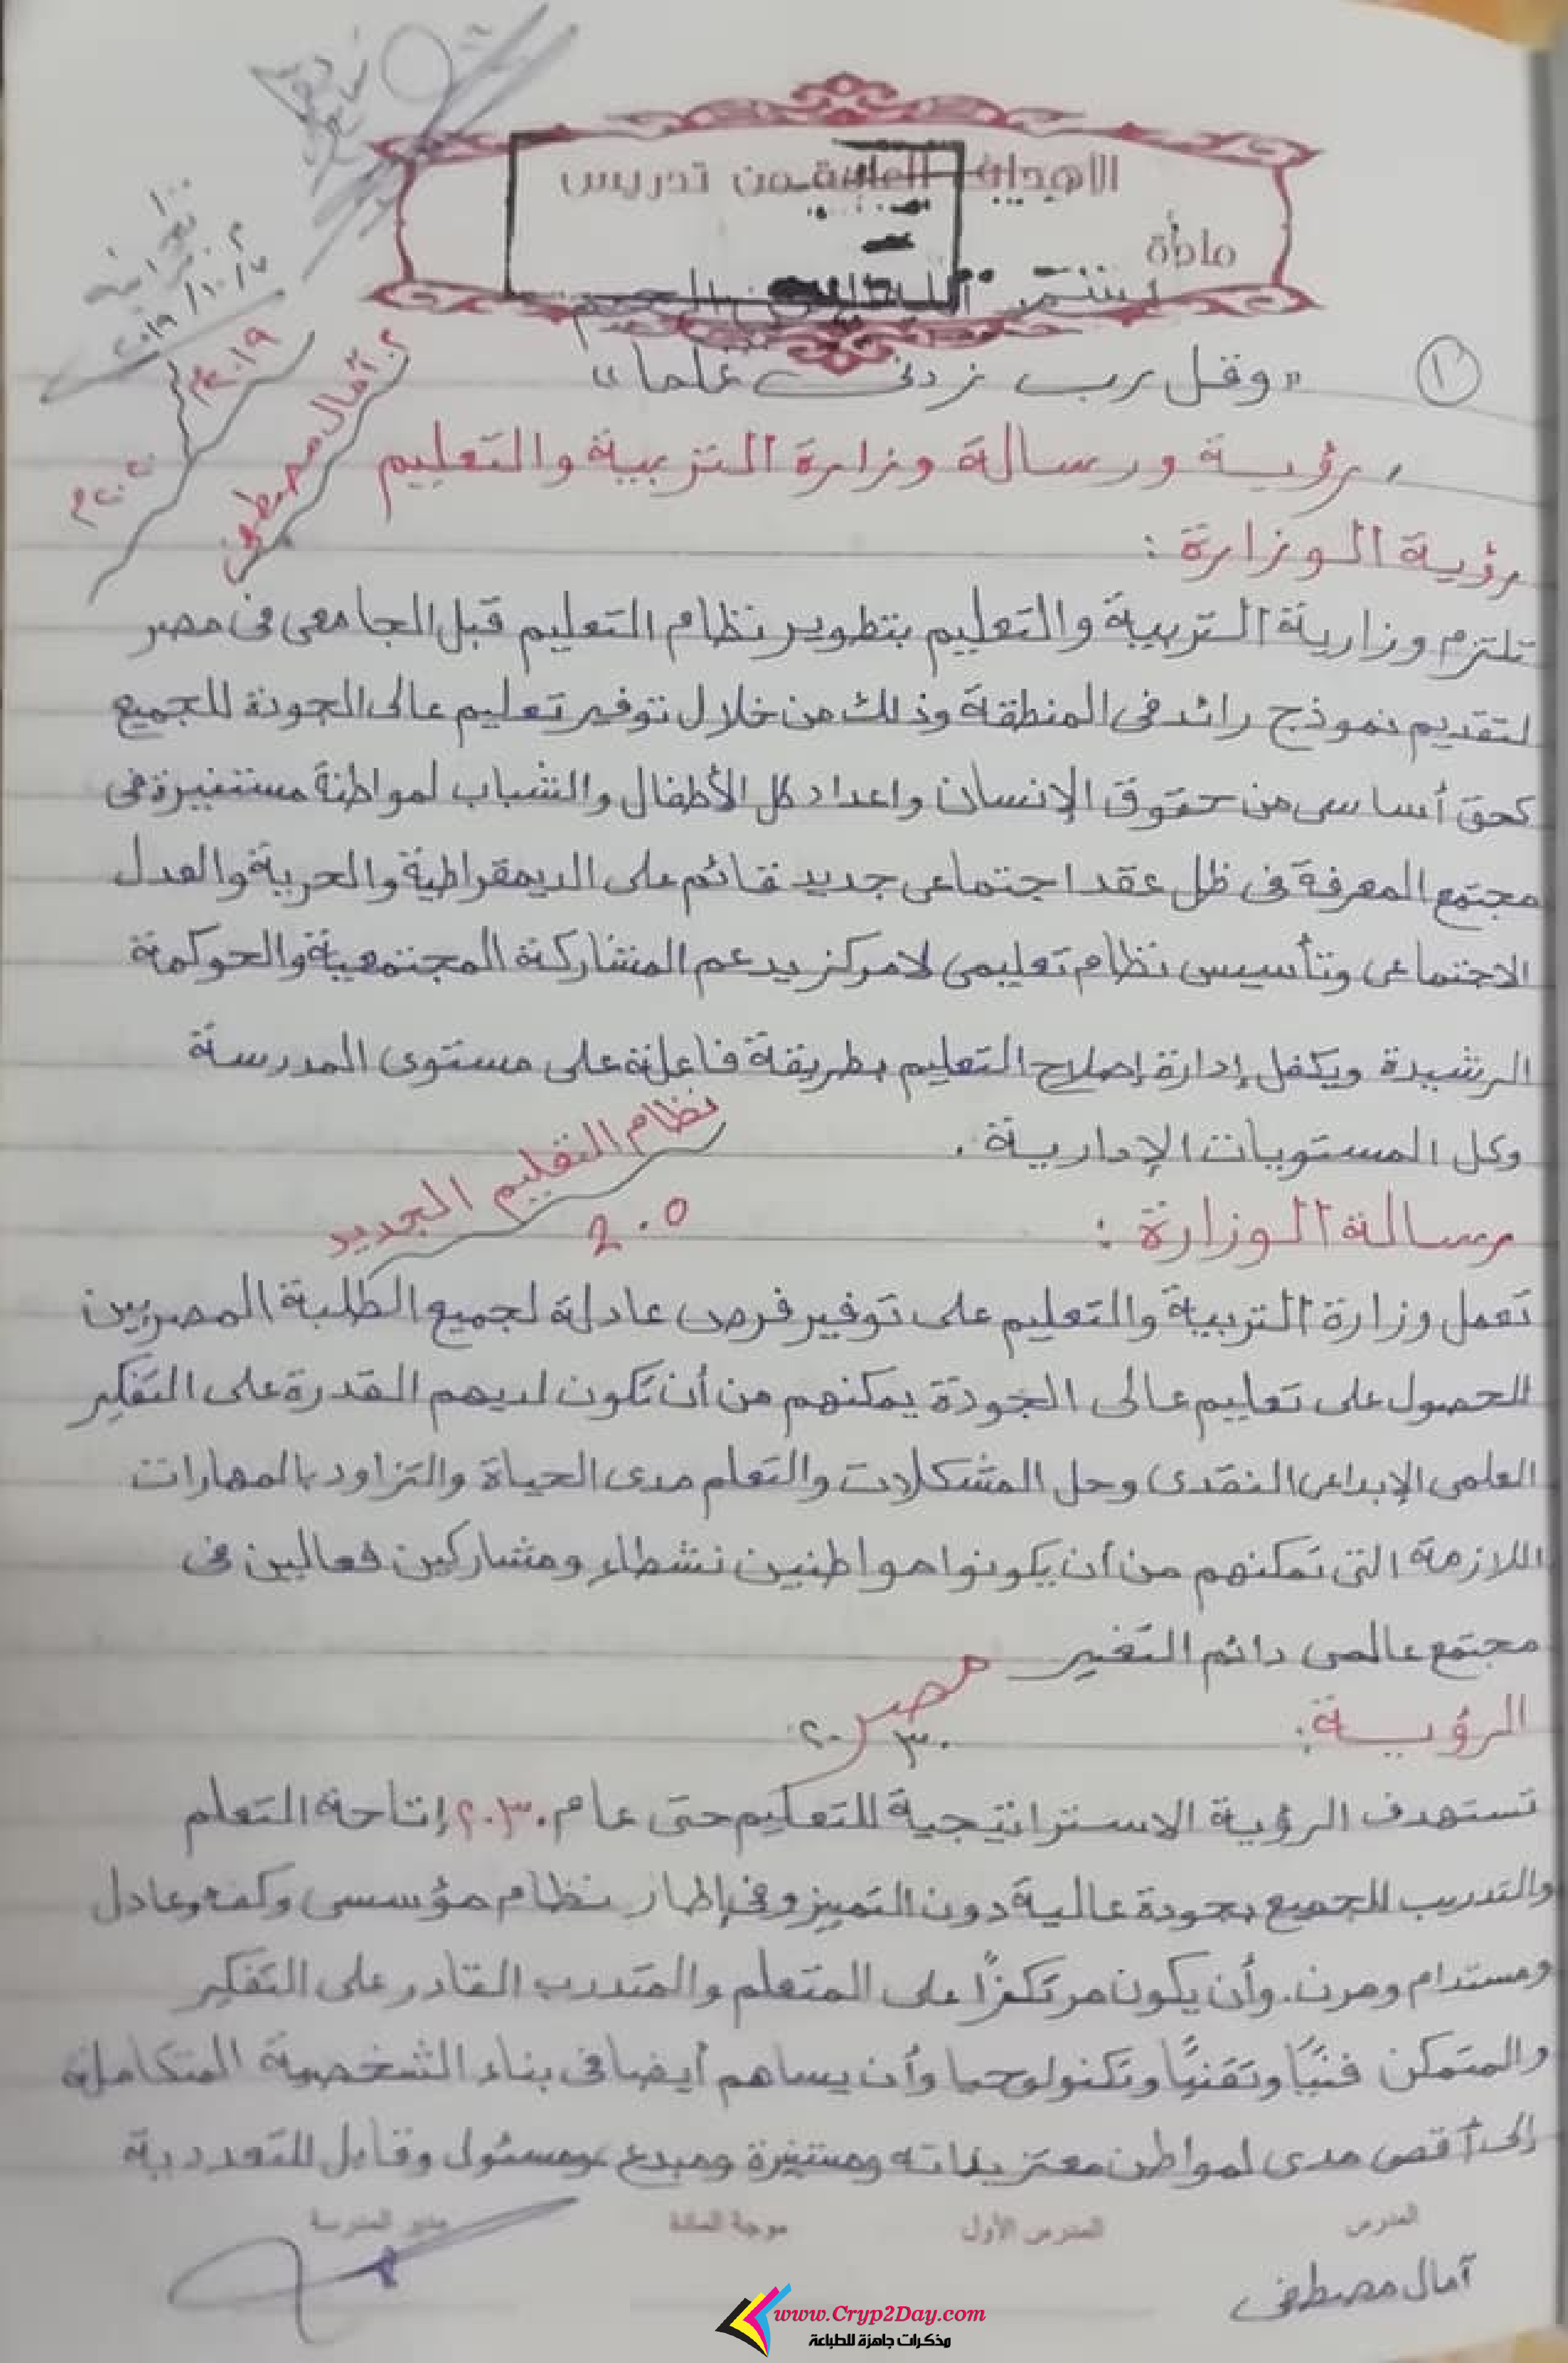 الأهداف العامة من تدريس
مادة
١
"وقل رب زدنى علما"
٢٠١٩/١٠/٧
٢٠١٩م
٢٠٢٠م
أ. آمال مصطفى
رؤية ورسالة وزارة التربية والتعليم
رؤية الوزارة :
تلتزم وزارية التربية والتعليم بتطوير نظام التعليم قبل الجامعى فى مصر
لتقديم نموذج رائد فى المنطقة وذلك من خلال توفير تعليم عالى الجودة للجميع
كحق أساسى من حقوق الإنسان واعداد كل الأطفال والشباب لمواطنة مستنيرة فى
مجتمع المعرفة فى ظل عقد اجتماعى جديد قائم على الديمقراطية والحرية والعدل
الاجتماعى وتأسيس نظام تعليمى لامركز يدعم المشاركة المجتمعية والحوكمة
الرشيدة ويكفل إدارة إصلاح التعليم بطريقة فاعلة على مستوى المدرسة
وكل المستويات الإدارية .
نظام التعليم الجديد
2.0
رسالة الوزارة :
تعمل وزارة التربية والتعليم على توفير فرص عادلة لجميع الطلبة المصريين
للحصول على تعليم عالى الجودة يمكنهم من أن تكون لديهم القدرة على التفكير
العلمى الإبداعى النقدى وحل المشكلات والتعلم مدى الحياة والتزاود بالمهارات
اللازمة التى تمكنهم من أن يكونوا مواطنين نشطاء ومشاركين فعالين فى
مجتمع عالمى دائم التغير
مصر ٢٠٣٠
الرؤية :
تستهدف الرؤية الاستراتيجية للتعليم حتى عام ٢٠٣٠ إتاحة التعلم
والتدريب للجميع بجودة عالية دون التميز وفى إطار نظام مؤسسى وكفء وعادل
ومستدام ومرن. وأن يكون مرتكزًا على المتعلم والمتدرب القادر على التفكير
والمتمكن فنيًا وتقنيًا وتكنولوجيا وأن يساهم أيضا فى بناء الشخصية المتكاملة
إلى أقصى مدى لمواطن معتز بذاته ومستنيرة ومبدع ومسئول وقابل للتعددية
المدرس
المدرس الأول
موجة المادة
مدير المدرسة
آمال مصطفى
www.Cryp2Day.com
مذكرات جاهزة للطباعة